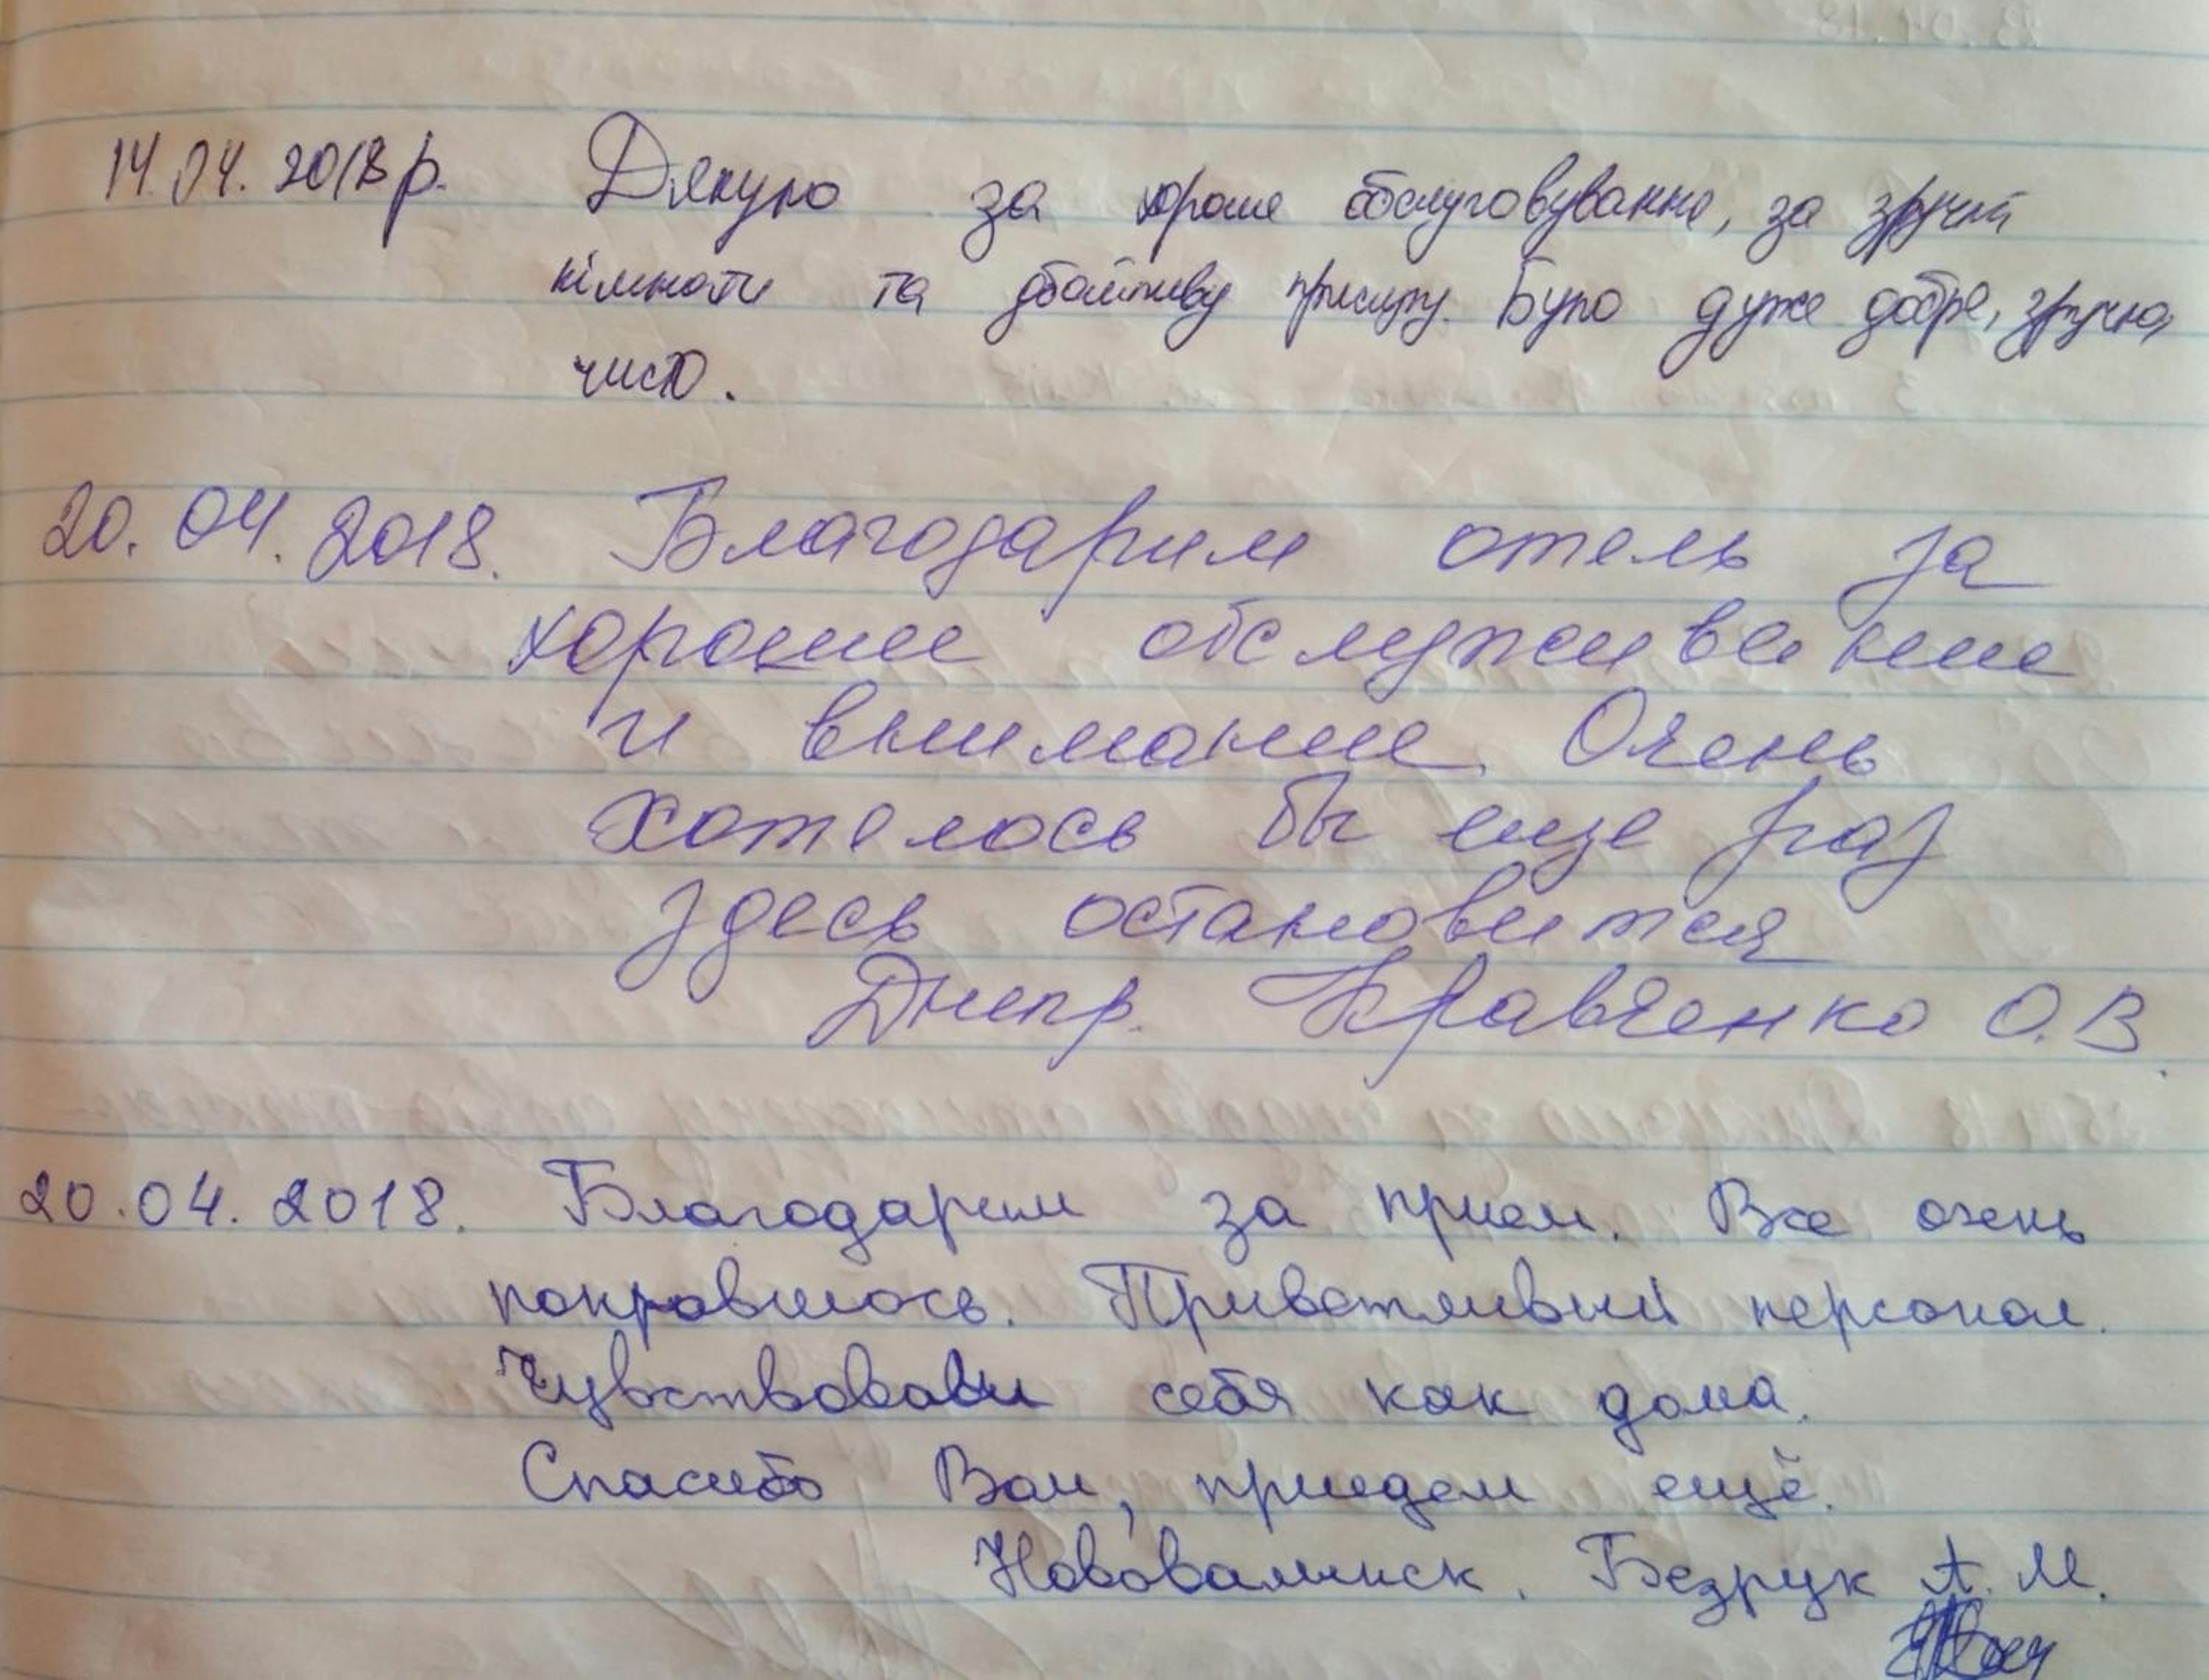 14.04.2018 р. Дякую за хороше обслуговування, за зручні
кімнати та дбайливу прислугу. Було дуже добре, зручно,
чисто.
20.04.2018. Благодарим отель за
хорошее обслуживание
и внимание. Очень
хотелось бы еще раз
здесь остановится
Днепр. Кравченко О.В.
20.04.2018. Благодарим за прием. Все очень
понравилось. Приветливый персонал.
Чувствовали себя как дома.
Спасибо Вам, приедем ещё.
Безрук А.М.